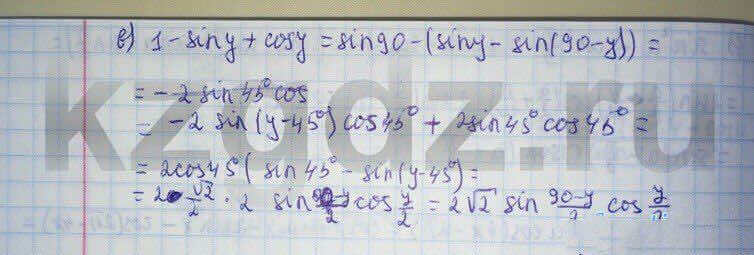 в) 1 - sin y + cos y = sin 90 - (sin y - sin(90-y)) =
= -2 sin 45° cos
= -2 sin(y-45°) cos 45° + 2 sin 45° cos 45° =
= 2cos 45° ( sin 45° - sin(y-45°) =
= 2 √2/2 · 2 sin (90-y)/2 cos y/2 = 2√2 sin (90-y)/2 · cos y/2
kzgdz.ru